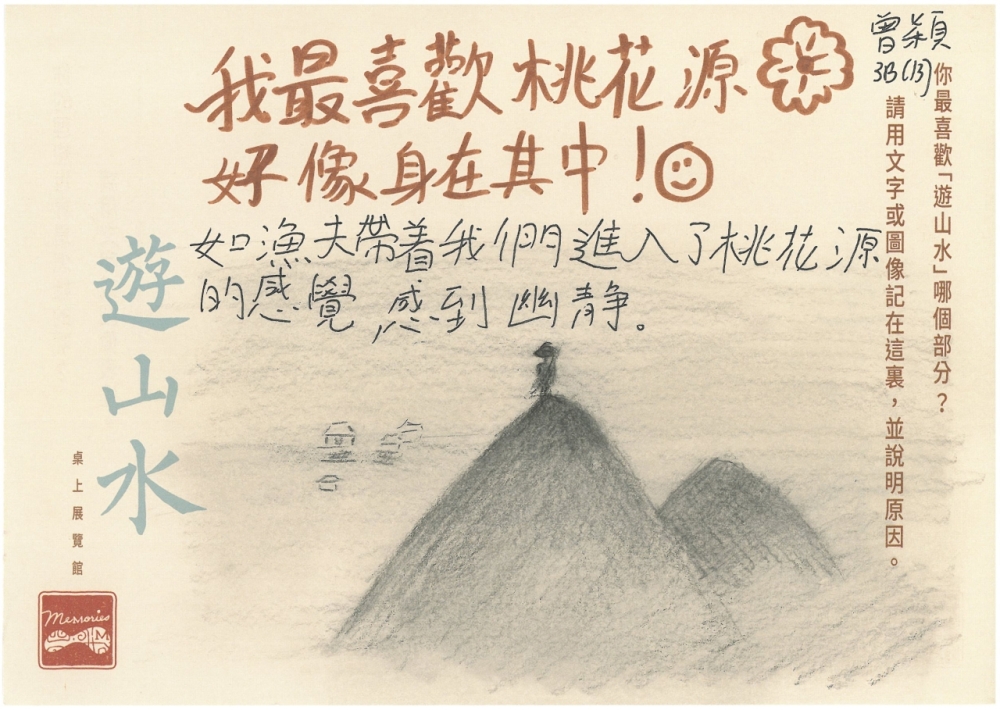 曾穎
3B(13)
你最喜歡「遊山水」哪個部分？
請用文字或圖像記在這裏，並說明原因。
我最喜歡桃花源
好像身在其中！
如漁夫帶着我們進入了桃花源
的感覺，感到幽静。
遊山水
桌上展覽館
Memories